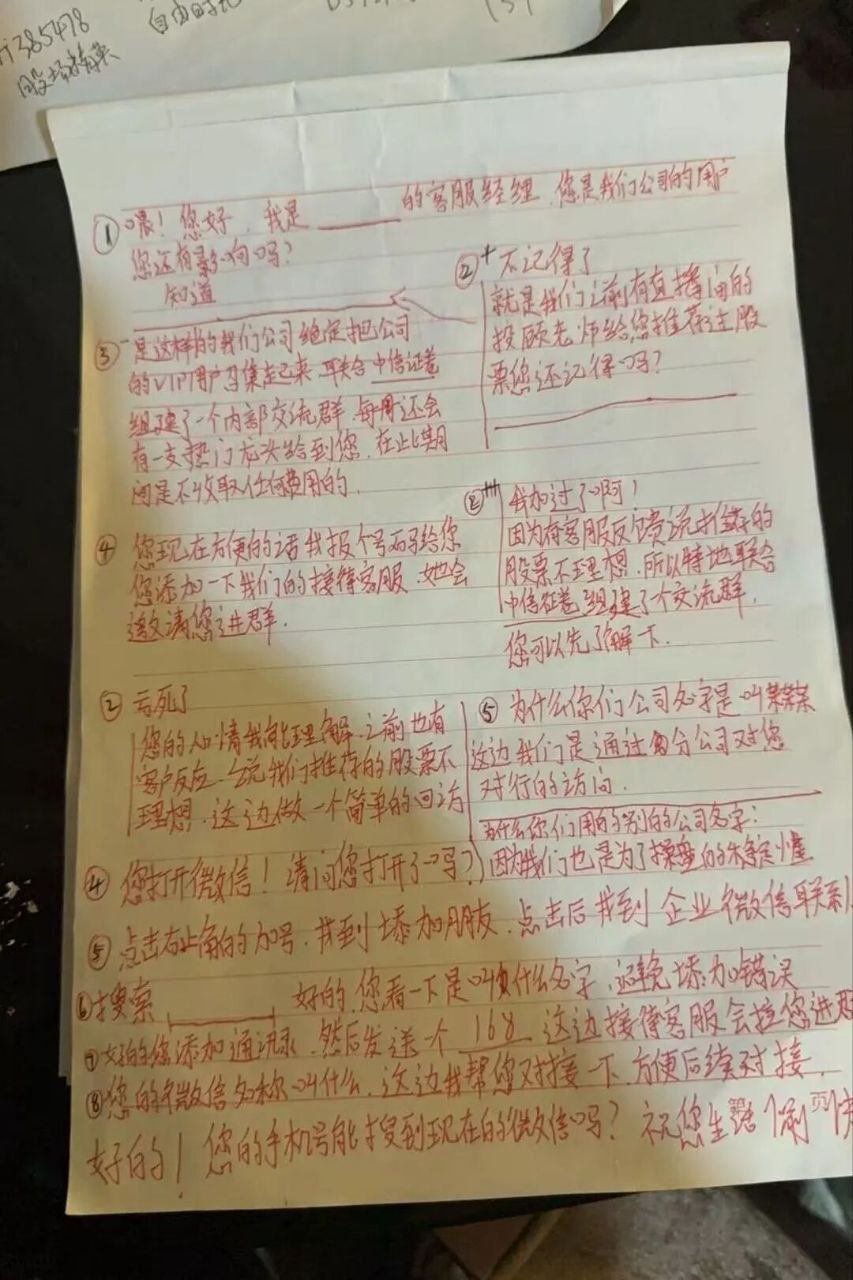 385478
自由时
①喂！您好，我是______的客服经理，您是我们公司的用户
您还有影响吗？
知道
②+不记得了
就是我们之前有直播间的
投顾老师给您推荐过股
票您还记得吗？
③是这样的我们公司绝定把公司
的VIP用户召集起来，联合中信证卷
组建了一个内部交流群，每周还会
有一支热门龙头给到您，在此期
间是不收取任何费用的，
②我加过了啊！
因为有客服反馈说推荐的
股票不理想，所以特地联合
中信证卷组建了个交流群，
您可以先了解下．
④您现在方便的话我报个号码给您
您添加一下我们的接待客服，她会
邀请您进群．
②亏死了
您的心情我能理解，之前也有
客户反应，说我们推荐的股票不
理想，这边做一个简单的回访
⑤为什么你们公司名字是叫某某某
这边我们是通过分公司对您
对行的访问．
为什么你们用的别的公司名字：
因为我们也是为了操盘的
④您打开微信！请问您打开了吗？
⑤点击右上角的加号，找到添加朋友，点击后找到企业微信联系
⑥搜索______好的，您看一下是叫什么名字，避免添加错误
⑦好的您添加通讯录，然后发送一个168这边接待客服会拉您进
⑧您的微信名称叫什么，这边我帮您对接一下，方便后续对接，
好的！您的手机号能搜到现在的微信吗？祝您生